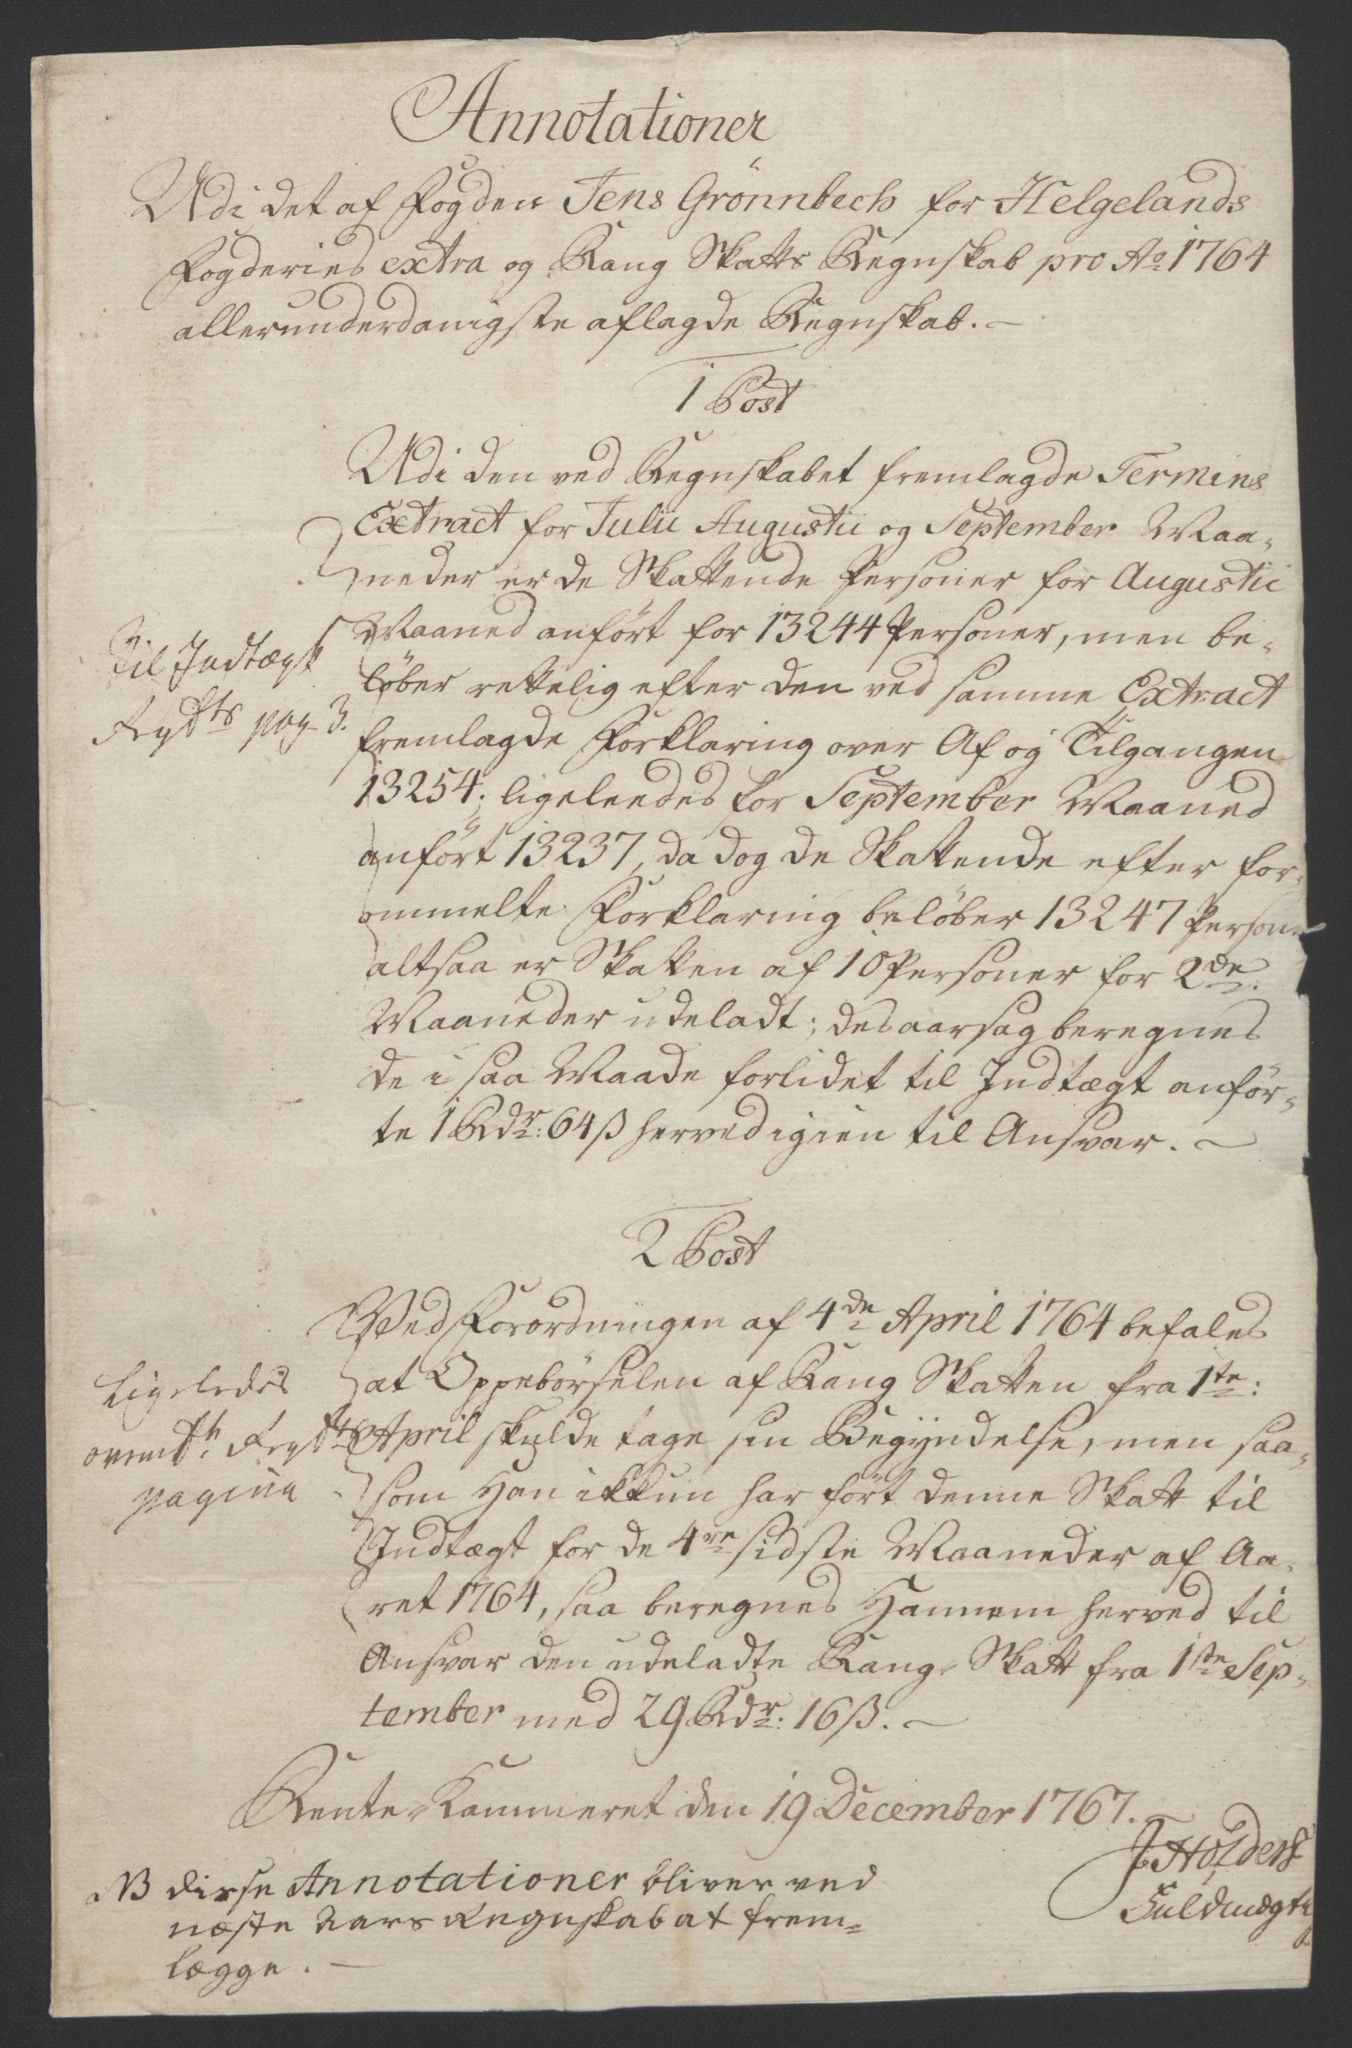 Annotationer
Udi det af Fogden Jens Grönnbech for Helgelands
Fogderies extra og Rang Skatts Regnskab pro Ao 1764
allerunderdanigste aflagde Regnskab.
1 Post
Udi den ved Regnskabet fremlagde Termins
Extract for Julii Augustii og September Maa-
neder er de Skattende Personer for Augustii
Maaned anfört for 13244 Personer, men be-
löber rettelig efter den ved samme Extract
fremlagde Forklaring over Af og Tilgangen
13254; ligeleedes for September Maaned
anfört 13237, da dog de Skattende efter for-
ommelte Forklaring belöber 13247 Persone
altsaa er Skatten af 10 Personer for 2de
Maaneder udeladt; desaarsag beregnes
de i saa Maade forlidet til Indtægt anför-
te 1 Rdr: 64 ß herved igien til Ansvar.
Til Indtægt
pag 3.
2 Post
Ved Forordningen af 4de April 1764 befales
at Oppebörselen af Rang Skatten fra 1te:
April skulde tage sin Begyndelse, men saa-
som Han ikkun har fört denne Skatt til
Indtægt for de 4re sidste Maaneder af Aa-
ret 1764, saa beregnes Hannem herved til
Ansvar den udeladte Rang Skatt fra 1ste Sep-
tember med 29 Rdr: 16 ß.
Ligeledes
pagina
Rente-Kammeret den 19 December 1767.
J Holdert
Fuldmægti
NB disse Annotationer bliver ved
næste Aars Regnskab at frem-
lægge.